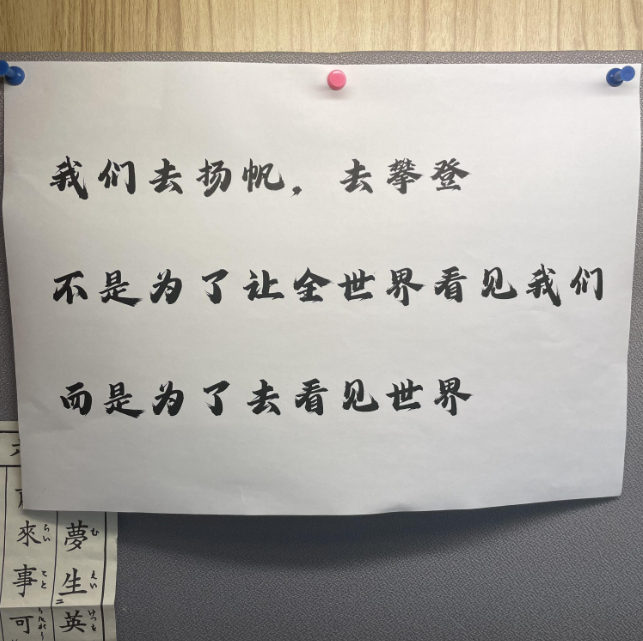 我们去扬帆，去攀登
不是为了让全世界看见我们
而是为了去看见世界
夢生英
來事可